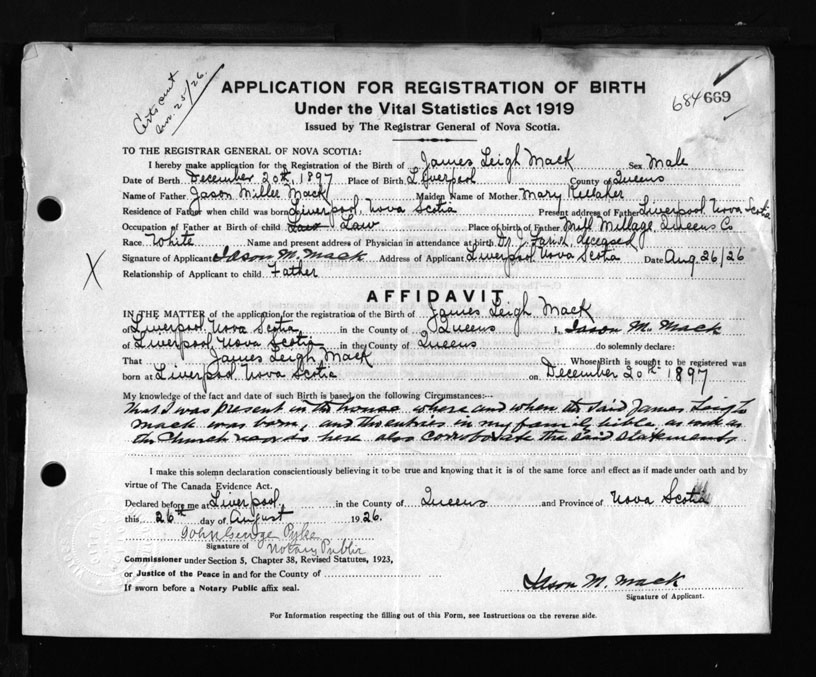 Certs sent
Aug. 25/26.
APPLICATION FOR REGISTRATION OF BIRTH
Under the Vital Statistics Act 1919
Issued by The Registrar General of Nova Scotia.
684 669
TO THE REGISTRAR GENERAL OF NOVA SCOTIA:
I hereby make application for the Registration of the Birth of James Leigh Mack Sex Male
Date of Birth December 20th, 1897 Place of Birth Liverpool County of Queens
Name of Father Jason Miller Mack Maiden Name of Mother Mary
Residence of Father when child was born Liverpool, Nova Scotia Present address of Father Liverpool, Nova Scotia
Occupation of Father at Birth of child Law Place of birth of Father Mill Millage, Queens Co
Race White Name and present address of Physician in attendance at birth Dr. J. Farish, deceased
Signature of Applicant Jason M. Mack Address of Applicant Liverpool Nova Scotia Date Aug. 26/26
Relationship of Applicant to child Father
X
AFFIDAVIT
IN THE MATTER of the application for the registration of the Birth of James Leigh Mack
of Liverpool, Nova Scotia, in the County of Queens I, Jason M. Mack
of Liverpool, Nova Scotia in the County of Queens do solemnly declare:
That James Leigh Mack Whose Birth is sought to be registered was
born at Liverpool Nova Scotia on December 20th 1897
My knowledge of the fact and date of such Birth is based on the following Circumstances:—
That I was present in the house where and when the said James Leigh
Mack was born, and the entries in my family bible, as well as
the Church records here also corroborate the said statements
I make this solemn declaration conscientiously believing it to be true and knowing that it is of the same force and effect as if made under oath and by
virtue of The Canada Evidence Act.
Declared before me at Liverpool in the County of Queens and Province of Nova Scotia
this 26th day of August 1926.
John George Pyke
Signature of Notary Public
Commissioner under Section 5, Chapter 38, Revised Statutes, 1923,
or Justice of the Peace in and for the County of
If sworn before a Notary Public affix seal.
Jason M. Mack
Signature of Applicant.
For Information respecting the filling out of this Form, see Instructions on the reverse side.